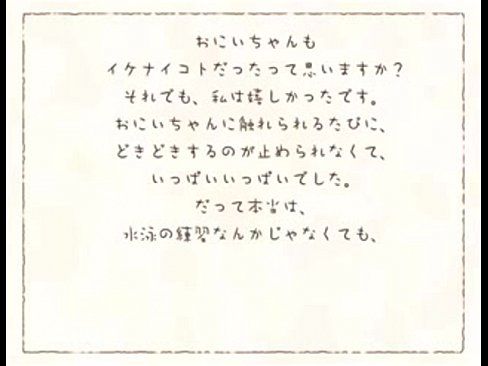 おにいちゃんも
イケナイコトだったって思いますか？
それでも、私は嬉しかったです。
おにいちゃんに触れられるたびに、
どきどきするのが止められなくて、
いっぱいいっぱいでした。
だって本当は、
水泳の練習なんかじゃなくても、